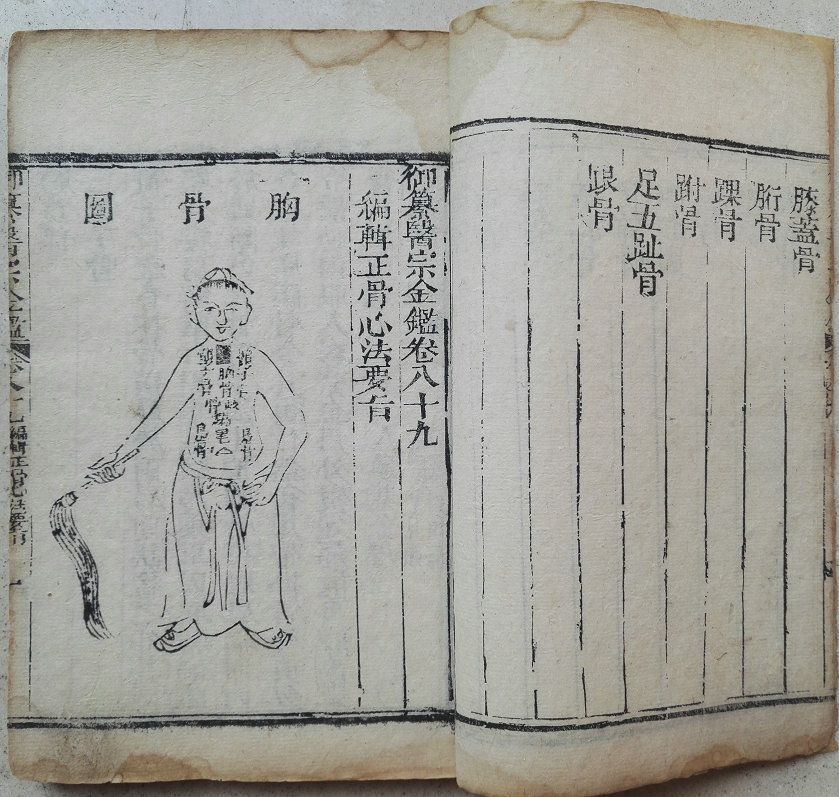 膝蓋骨
䯒骨
踝骨
跗骨
足五趾骨
跟骨
御纂醫宗金鑑卷八十九
編輯正骨心法要旨
胸骨圖
胸骨
骨
御纂醫宗金鑑
卷八十九
編輯正骨心法要旨
一